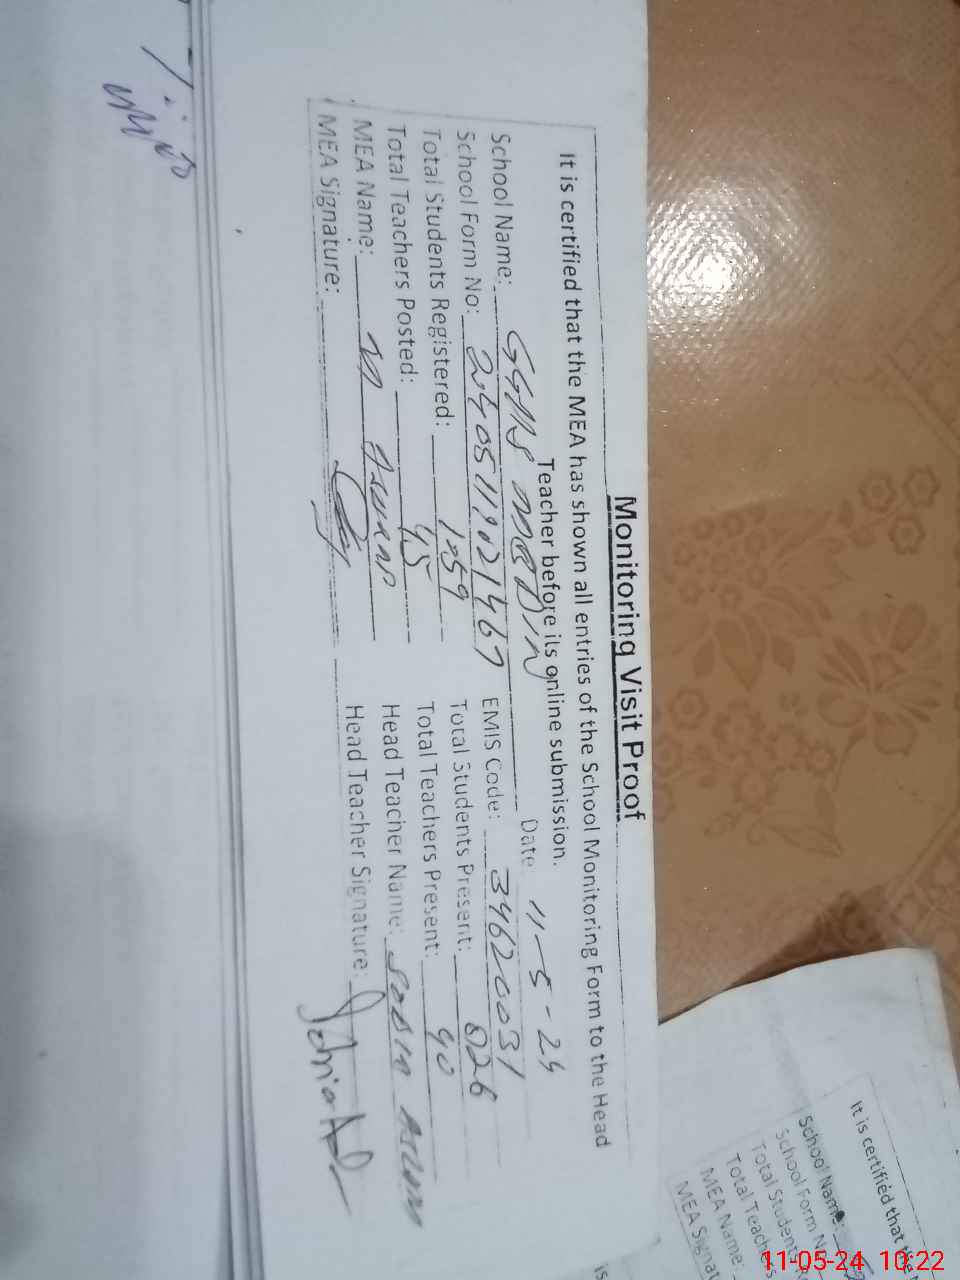 Monitoring Visit Proof
It is certified that the MEA has shown all entries of the School Monitoring Form to the Head
Teacher before its online submission.
School Name: GGHS MBDIN Date: 11-5-24
School Form No: 2405111021467 EMIS Code: 34620031
Total Students Registered: 1059 Total Students Present: 826
Total Teachers Posted: 45 Total Teachers Present: 40
MEA Name: M Head Teacher Name: Sobia Aslam
MEA Signature: Head Teacher Signature:
It is certified that the
School Name:
School Form N
Total Students Re
Total Teachers
MEA Name:
MEA Signat
is
11-05-24 10:22